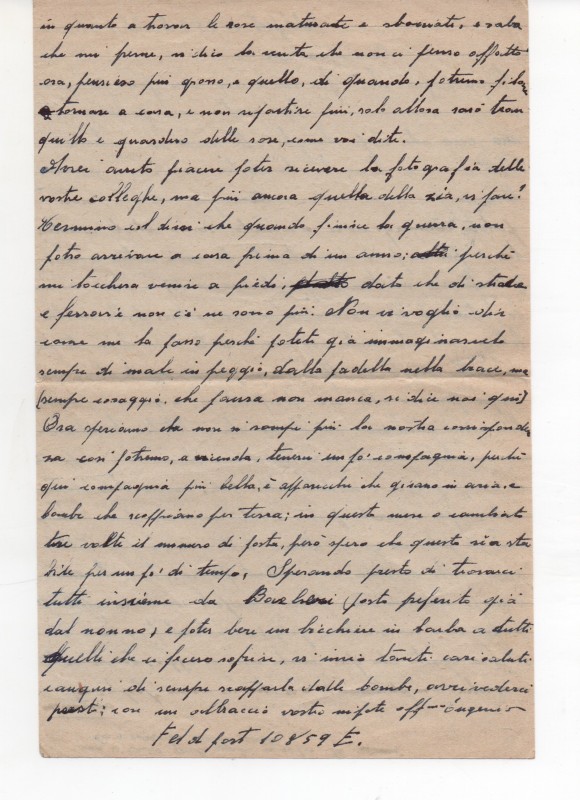 in quanto a trovar le rose maturate e sbocciate, e roba
che mi preme, vi dico la verità che non ci penso affatto
ora, pensiero più grosso, e quello, di quando, potremo filare
e tornare a casa, e non ripartire più, solo allora sarò tran
quillo e guarderò delle rose, come voi dite.
Avrei avuto piacere poter ricevere la fotografia delle
vostre colleghe, ma più ancora quella della zia, si pare?
Termino col dirvi che quando finisce la guerra, non
potrò arrivare a casa prima di un anno; perché
mi toccherà venire a piedi, dato che di strade
e ferrovie non c'è ne sono più. Non vi voglio dir
come me la passo perché potete già immaginarvelo
sempre di male in peggio, dalla padella nella brace, ma
(sempre coraggio, che paura non manca, si dice noi qui)
Ora speriamo che non si rompe più la nostra corrisponden
za così potremo, a vicenda, tenersi un po' compagnia, perché
qui compagnia più bella, è apparecchi che girano in aria, e
bombe che scoppiano per terra; in questo mese o cambiato
tre volte il numero di posta, però spero che questo sia sta
bile per un po' di tempo, Sperando presto di trovarci
tutti insieme da (posto preferito già
dal nonno) e poter bere un bicchiere in barba a tutti
quelli che ci fecero soffrire, vi invio tanti cari saluti
e auguri di sempre scapparla dalle bombe, arrivederci
presto; con un abbraccio vostro nipote aff— Eugenio
Feld post 10859 E.